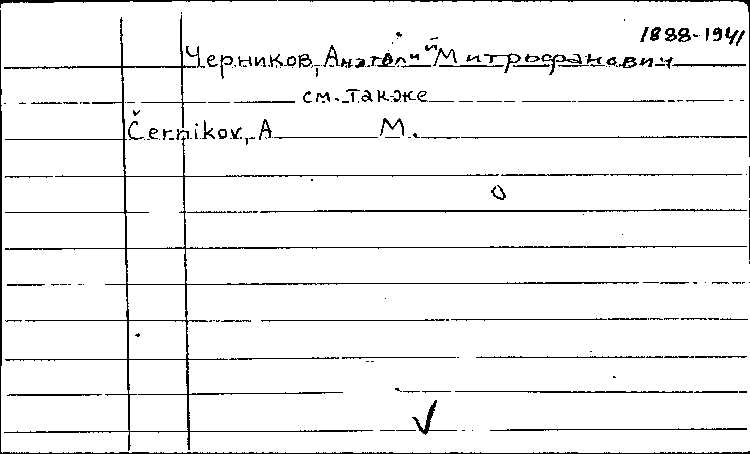 1888-1941
Черников, Анатолий Митрофанович
см. также
Černikov, A M.